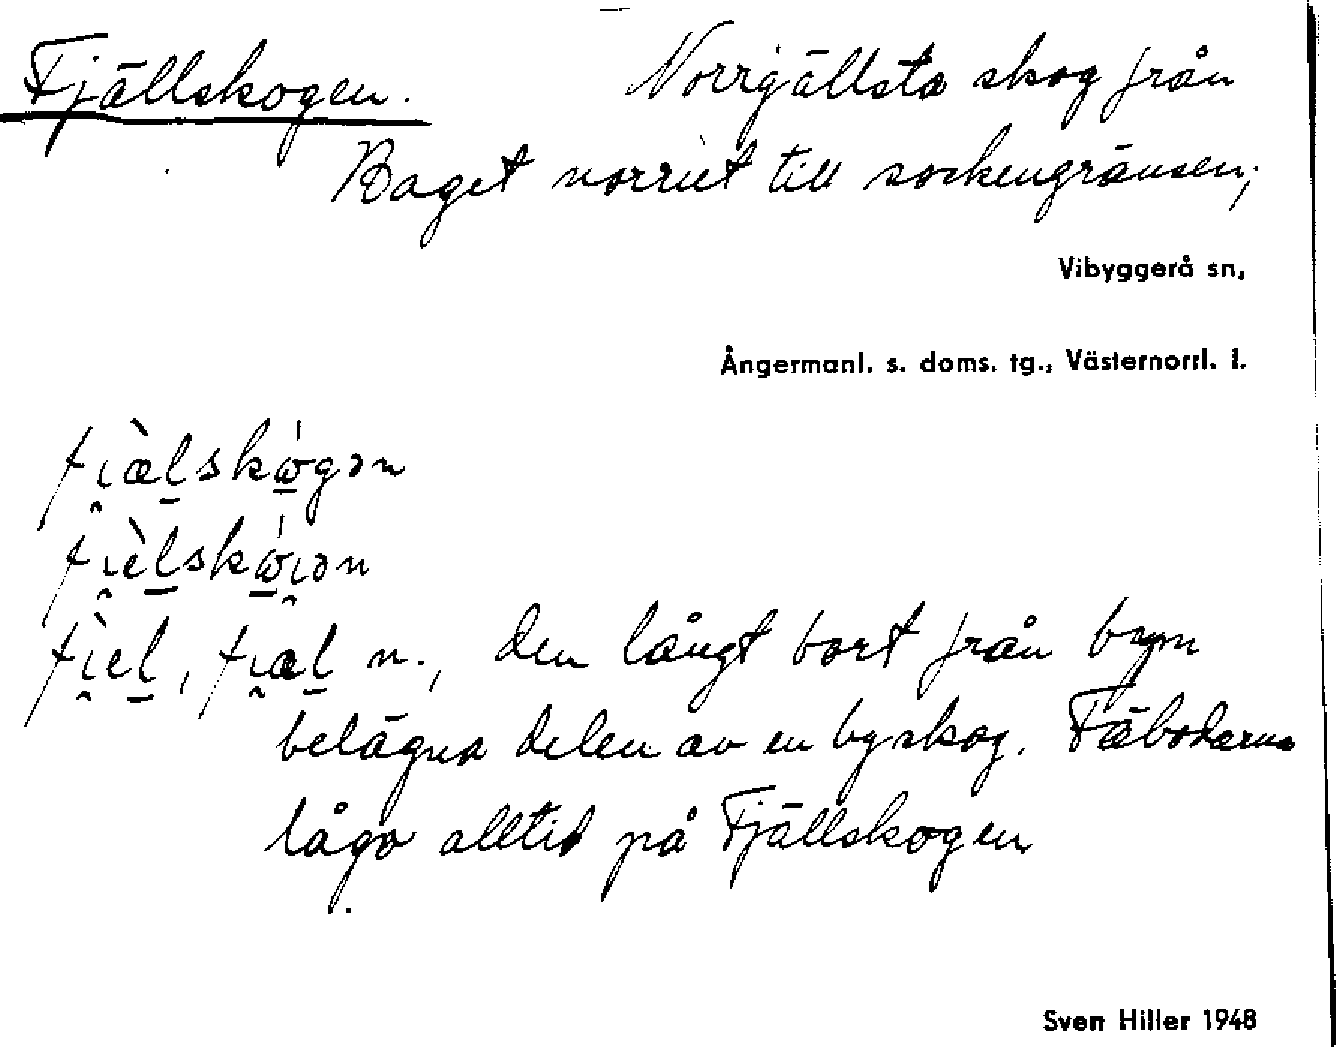 Fjällskogen. Norrgällsta skog från
Baget norrut till sockengränsen;
Vibyggerå sn,
Ångermanl. s. doms. tg., Västernorrl. l.
fi̯æ̀l̠skώ̠gən
fi̯èl̠skώ̠i̯ən
fi̯èl̠, fi̯æl̠ n., den långt bort från byn
belägna delen av en byskog. Fäbodarna
lågo alltid på Fjällskogen
Sven Hiller 1948